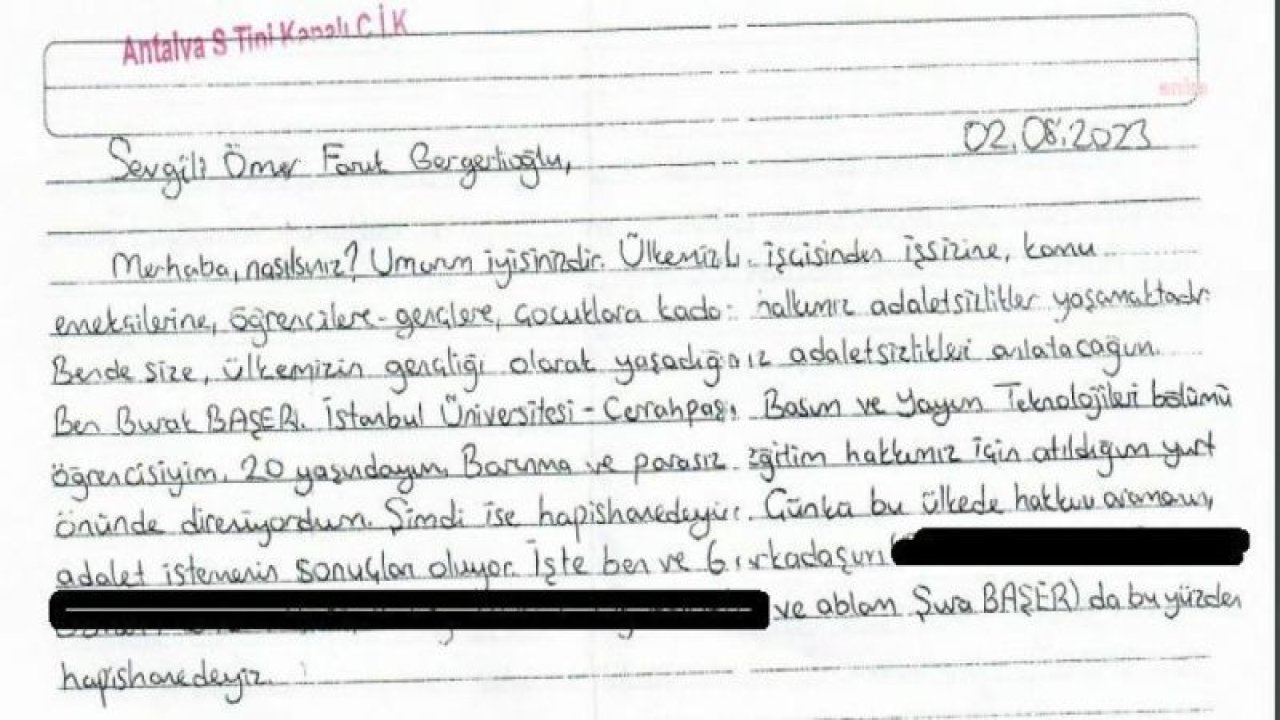 Antalya S Tipi Kapalı C İ K
anka
02.08.2023
Sevgili Ömer Faruk Gergerlioğlu,
Merhaba, nasılsınız? Umarım iyisinizdir. Ülkemizde işçisinden işsizine, kamu
emekçilerine, öğrencilere-gençlere, çocuklara kadar halkımız adaletsizlikler yaşamaktadır.
Bende size, ülkemizin gençliği olarak yaşadığımız adaletsizlikleri anlatacağım.
Ben Burak BAŞER. İstanbul Üniversitesi-Cerrahpaşa Basım ve Yayım Teknolojileri bölümü
öğrencisiyim, 20 yaşındayım. Barınma ve parasız eğitim hakkımız için atıldığım yurt
önünde direniyordum. Şimdi ise hapishanedeyim. Çünkü bu ülkede hakkını aramanın,
adalet istemenin sonuçları oluyor. İşte ben ve 6 arkadaşım (
ve ablam Şura BAŞER) da bu yüzden
hapishanedeyiz.